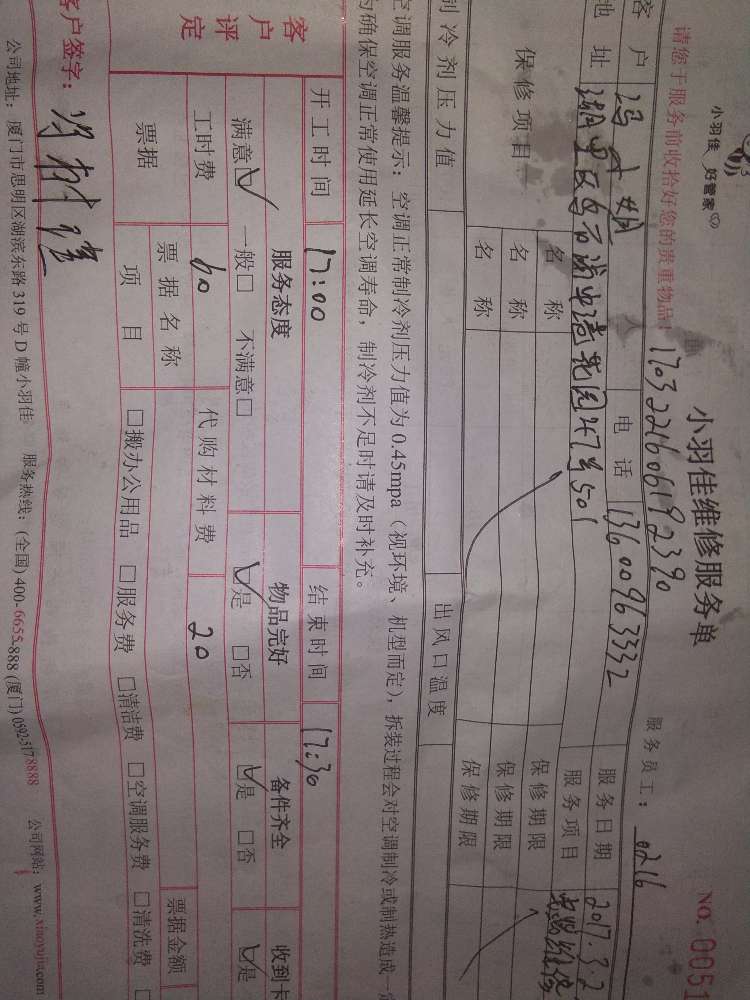 小羽佳 好管家
小羽佳维修服务单
NO. 0051
请您于服务前收拾好您的贵重物品!
1703221606192390
服务员工: 0216
客户 冯女姐 电话 13600963332 服务日期 2017.3.2
地址 湖里区乌石浦 花园47号501 服务项目 电器维修
保修项目 名称 保修期限
名称 保修期限
名称 保修期限
制冷剂压力值 出风口温度
空调服务温馨提示: 空调正常制冷剂压力值为0.45mpa (视环境、机型而定), 拆装过程会对空调制冷或制热造成一定
为确保空调正常使用延长空调寿命, 制冷剂不足时请及时补充。
开工时间 17:00 结束时间 17:30
客户评定 服务态度 物品完好 备件齐全 收到卡
满意☑ 一般□ 不满意□ ☑是 □否 ☑是 □否 ☑是
工时费 60 代购材料费 20
票据 票据名称 票据金额
项目 □搬办公用品 □服务费 □清洁费 □空调服务费 □清洗费 □
客户签字:
公司地址: 厦门市思明区湖滨东路319号D幢小羽佳 服务热线: (全国) 400-6655-888 (厦门) 0592-5178888 公司网站: www.xiaoyujia.com